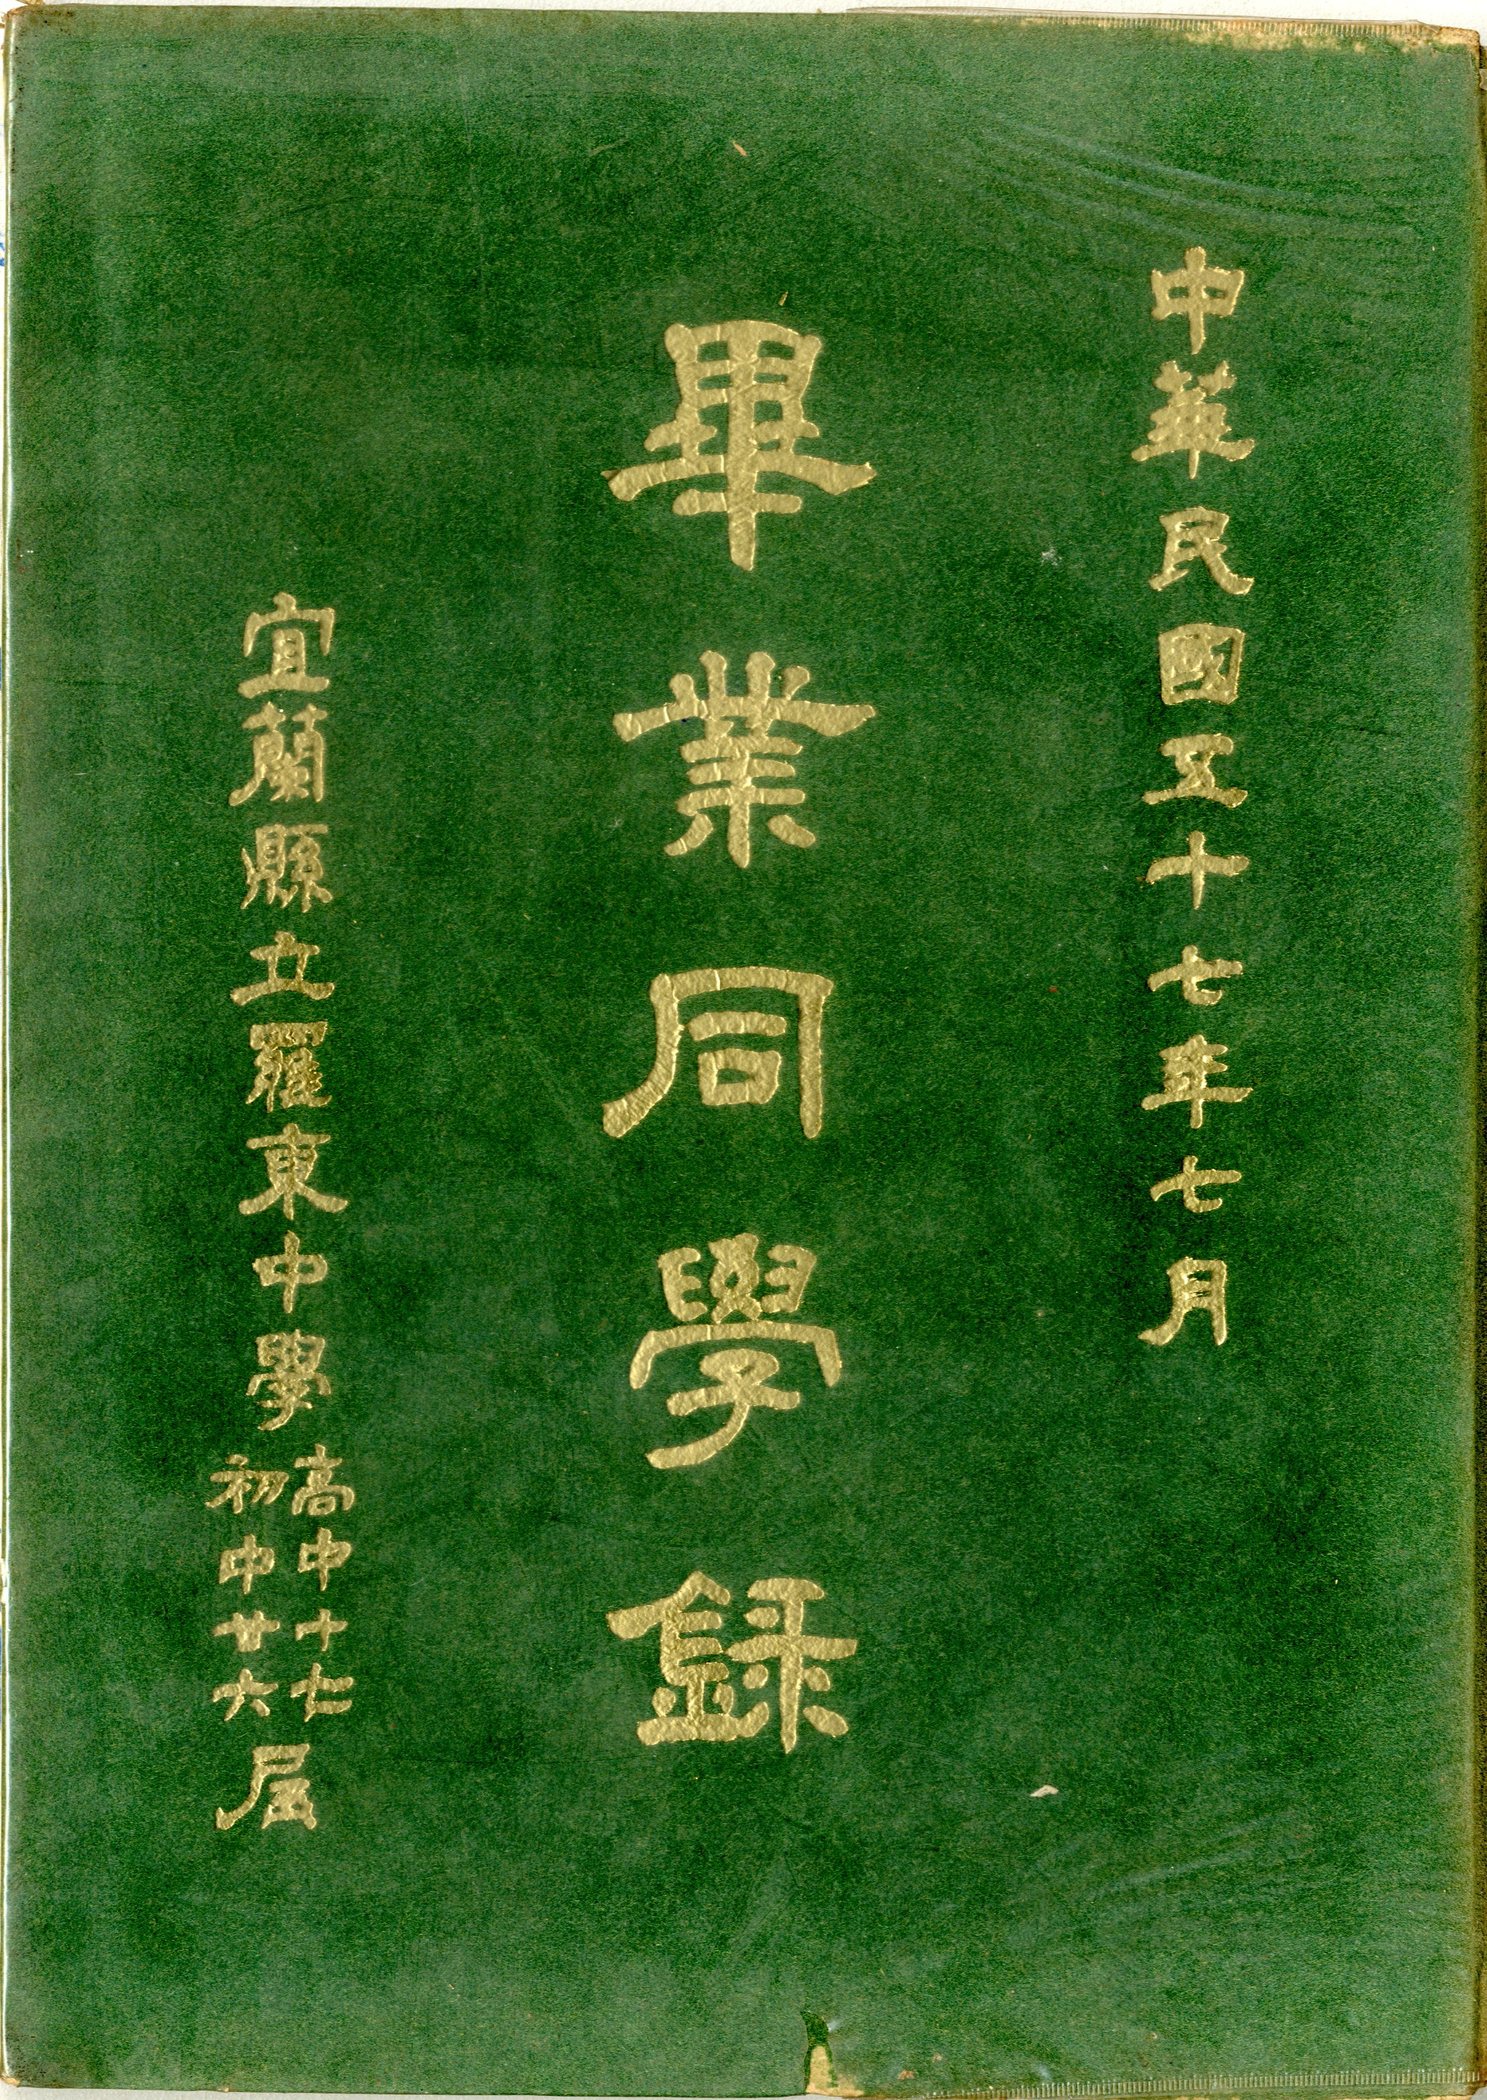 中華民國五十七年七月
畢業同學錄
宜蘭縣立羅東中學
高中十七
初中廿六
屆